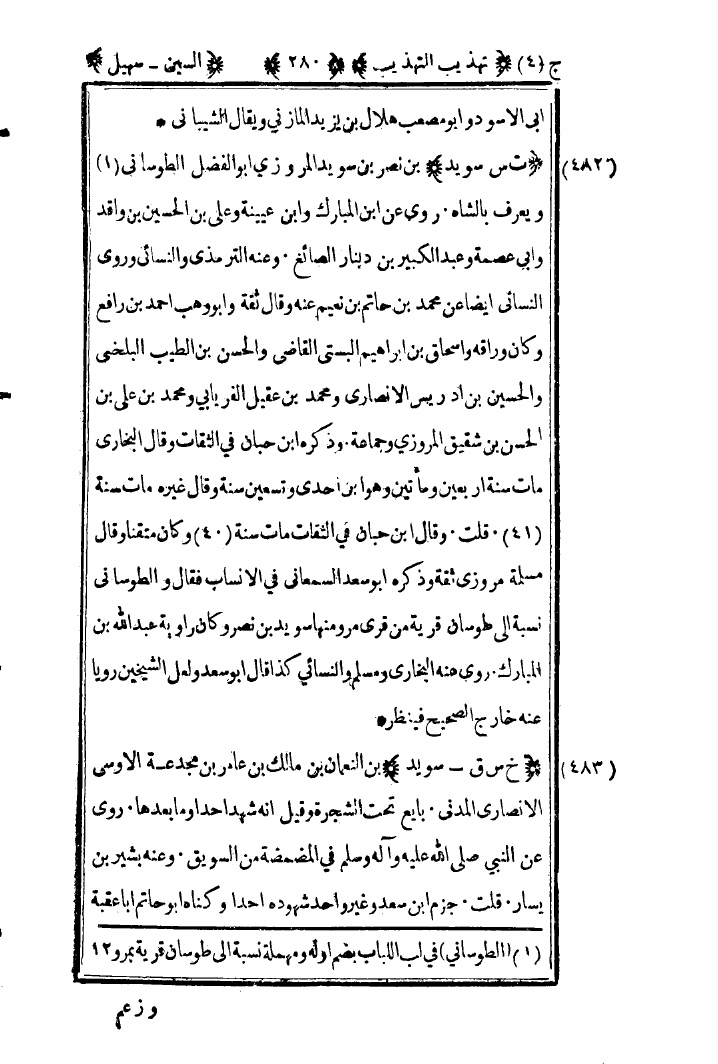 ج (٤) ﴿ تهذيب التهذيب ﴾ ﴿ ٢٨٠ ﴾ ﴿ السين - سهيل ﴾
ابى الاسود وابو مصعب هلال بن يزيد المازني ويقال الشيبانى •
(٤٨٢) ﴿ ت س سويد ﴾ بن نصر بن سويد المروزي ابو الفضل الطوسانى (١)
ويعرف بالشاه · روى عن ابن المبارك وابن عيينة وعلى بن الحسين بن واقد
وابي عصمة وعبد الكبير بن دينار الصائغ · وعنه الترمذى والنسائى وروى
النسائى ايضا عن محمد بن حاتم بن نعيم عنه وقال ثقة وابو وهب احمد بن رافع
وكان وراقه واسحاق بن ابراهيم البستى القاضى والحسن بن الطيب البلخى
والحسين بن ادريس الانصارى ومحمد بن عقيل الفريابي ومحمد بن على بن
الحسن بن شقيق المروزي وجماعة · وذكره ابن حبان في الثقات وقال البخارى
مات سنة اربعين ومأتين وهو ابن احدى وتسعين سنة وقال غيره مات سنة
(٤١) · قلت · وقال ابن حبان في الثقات مات سنة (٤٠) وكان متقنا وقال
مسلمة مروزى ثقة وذكره ابو سعد السمعانى في الانساب فقال والطوسانى
نسبة الى طوسان قرية من قرى مرو منها سويد بن نصر وكان راوية عبدالله بن
المبارك · روى عنه البخارى ومسلم والنسائي كذا قال ابو سعد ولعل الشيخين رويا
عنه خارج الصحيح فينظر •
(٤٨٣) ﴿ خ س ق - سويد ﴾ بن النعمان بن مالك بن عامر بن مجدعة الاوسى
الانصارى المدنى · بايع تحت الشجرة وقيل انه شهد احدا وما بعدها · روى
عن النبي صلى الله عليه وآله وسلم في المضمضة من السويق · وعنه بشير بن
يسار · قلت · جزم ابن سعد وغير واحد شهوده احدا وكناه ابو حاتم ابا عقبة
(١) (الطوساني) في لب اللباب بضم اوله ومهملة نسبة الى طوسان قرية بمرو ١٢
وزعم